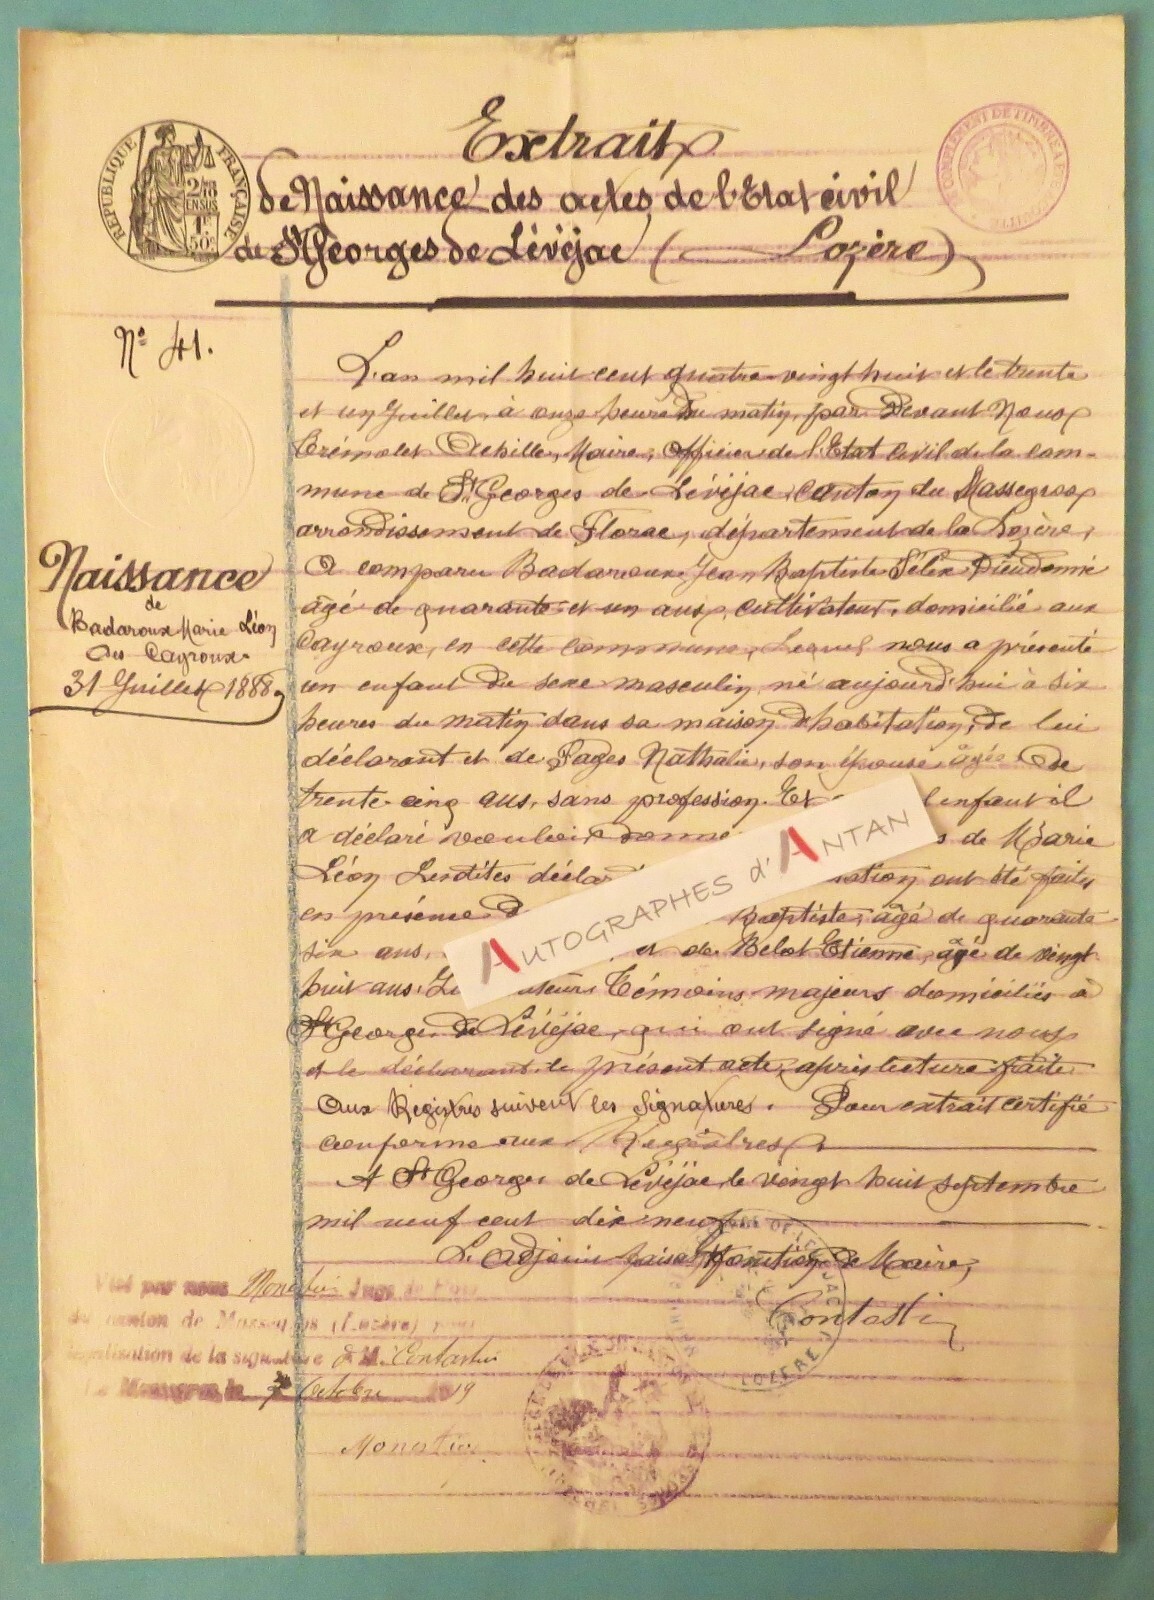 RÉPUBLIQUE FRANÇAISE
2/10
EN SUS
1F
50c
Extrait
de Naissance des actes de l'Etat civil
de St Georges de Lévéjac ( Lozère )
No 41.
Naissance
de
Badaroux Marie Léon
des Cayroux
31 Juillet 1888
L'an mil huit cent quatre-vingt huit et le trente
et un Juillet, à onze heures du matin, par devant Nous
Achille, Maire, Officier de l'Etat civil de la com-
mune de St Georges de Lévéjac, canton du Massegros
arrondissement de Florac, département de la Lozère,
A comparu Badaroux Jean Baptiste Félix Dieudonné
âgé de quarante et un ans, cultivateur, domicilié aux
Cayroux, en cette commune, Lequel nous a présenté
un enfant du sexe masculin, né aujourd'hui à six
heures du matin dans sa maison d'habitation, de lui
déclarant et de Pagès Nathalie, son épouse âgée de
trente-cinq ans, sans profession. Et l'enfant il
a déclaré vouloir donne s de Marie
Léon Lesdites déclar ation ont été faites
en présence d Baptiste, âgé de quarante
six ans, et de Belot Etienne, âgé de vingt
huit ans, ateurs Témoins majeurs domiciliés à
St Georges de Lévéjac, qui ont signé avec nous
et le déclarant le présent acte, après lecture faite
Aux Registres suivent les Signatures. Pour extrait certifié
conforme aux Registres
A St Georges de Lévéjac, le vingt huit septembre
mil neuf cent dix neuf
L'adjoint faisant fonction de Maire,
Contastin
AUTOGRAPHES d'ANTAN
Vu par nous Monestier Juge de Paix
du canton de Massegros (Lozère) pour
légalisation de la signature de M. Contastin
Le Massegros, le Octobre 1919
Monestier